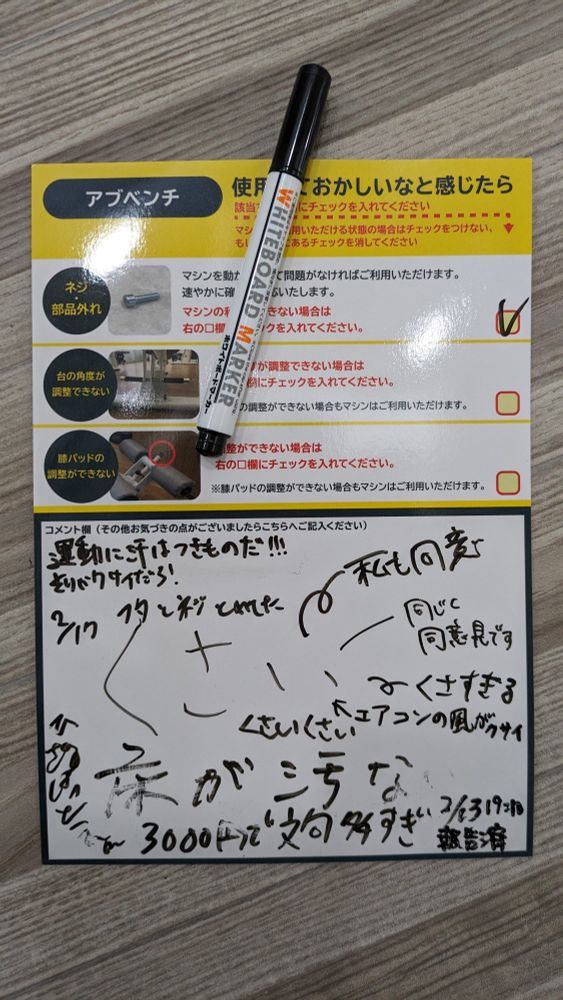 アブベンチ
使用 ておかしいなと感じたら
該当 にチェックを入れてください
マシン 用いただける状態の場合はチェックをつけない、
もし にあるチェックを消してください
ネジ・部品外れ
マシンを動か て問題がなければご利用いただけます。
速やかに確 いたします。
マシンの利 できない場合は
右の□欄に ェックを入れてください。
台の角度が
調整できない
度が調整できない場合は
欄にチェックを入れてください。
の調整ができない場合もマシンはご利用いただけます。
膝パッドの
調整ができない
調整ができない場合は
右の□欄にチェックを入れてください。
※膝パッドの調整ができない場合もマシンはご利用いただけます。
WHITEBOARD MARKER
ホワイトボードマーカー
コメント欄(その他お気づきの点がございましたらこちらへご記入ください)
運動に汗はつきものだ!!!
私も同意
2/17 フタとネジとれてた
同じく
同意見です
くさい
くさすぎる
くさいくさい
エアコンの風がクサイ
床が汚な
3000円で文句多すぎ
報告済